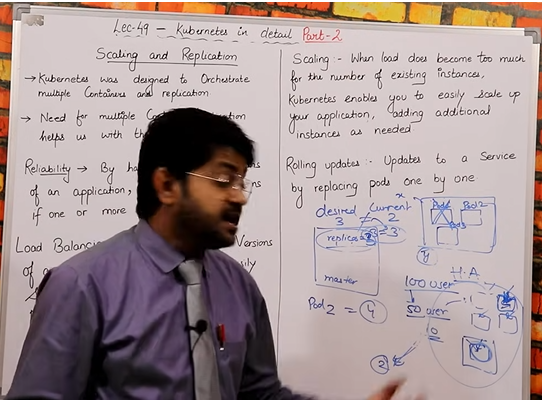 Lec-49 - Kubernetes in detail Part-2
Scaling and Replication
→ Kubernetes was designed to Orchestrate
multiple Containers and replication
→ Need for multiple
helps us with th
Reliability → By ha
of an application,
if one or more
Load Balanc Versions
of a
Scaling :- When load does become too much
for the number of existing instances,
Kubernetes enables you to easily scale up
your application, adding additional
instances as needed
Rolling updates :- Updates to a Service
by replacing pods one by one
desired Current
3 ≠ 2
replicas 3
master
Pod2
Pod3
4
H.A
100 user
50 user
10
Pod2 = 4
2